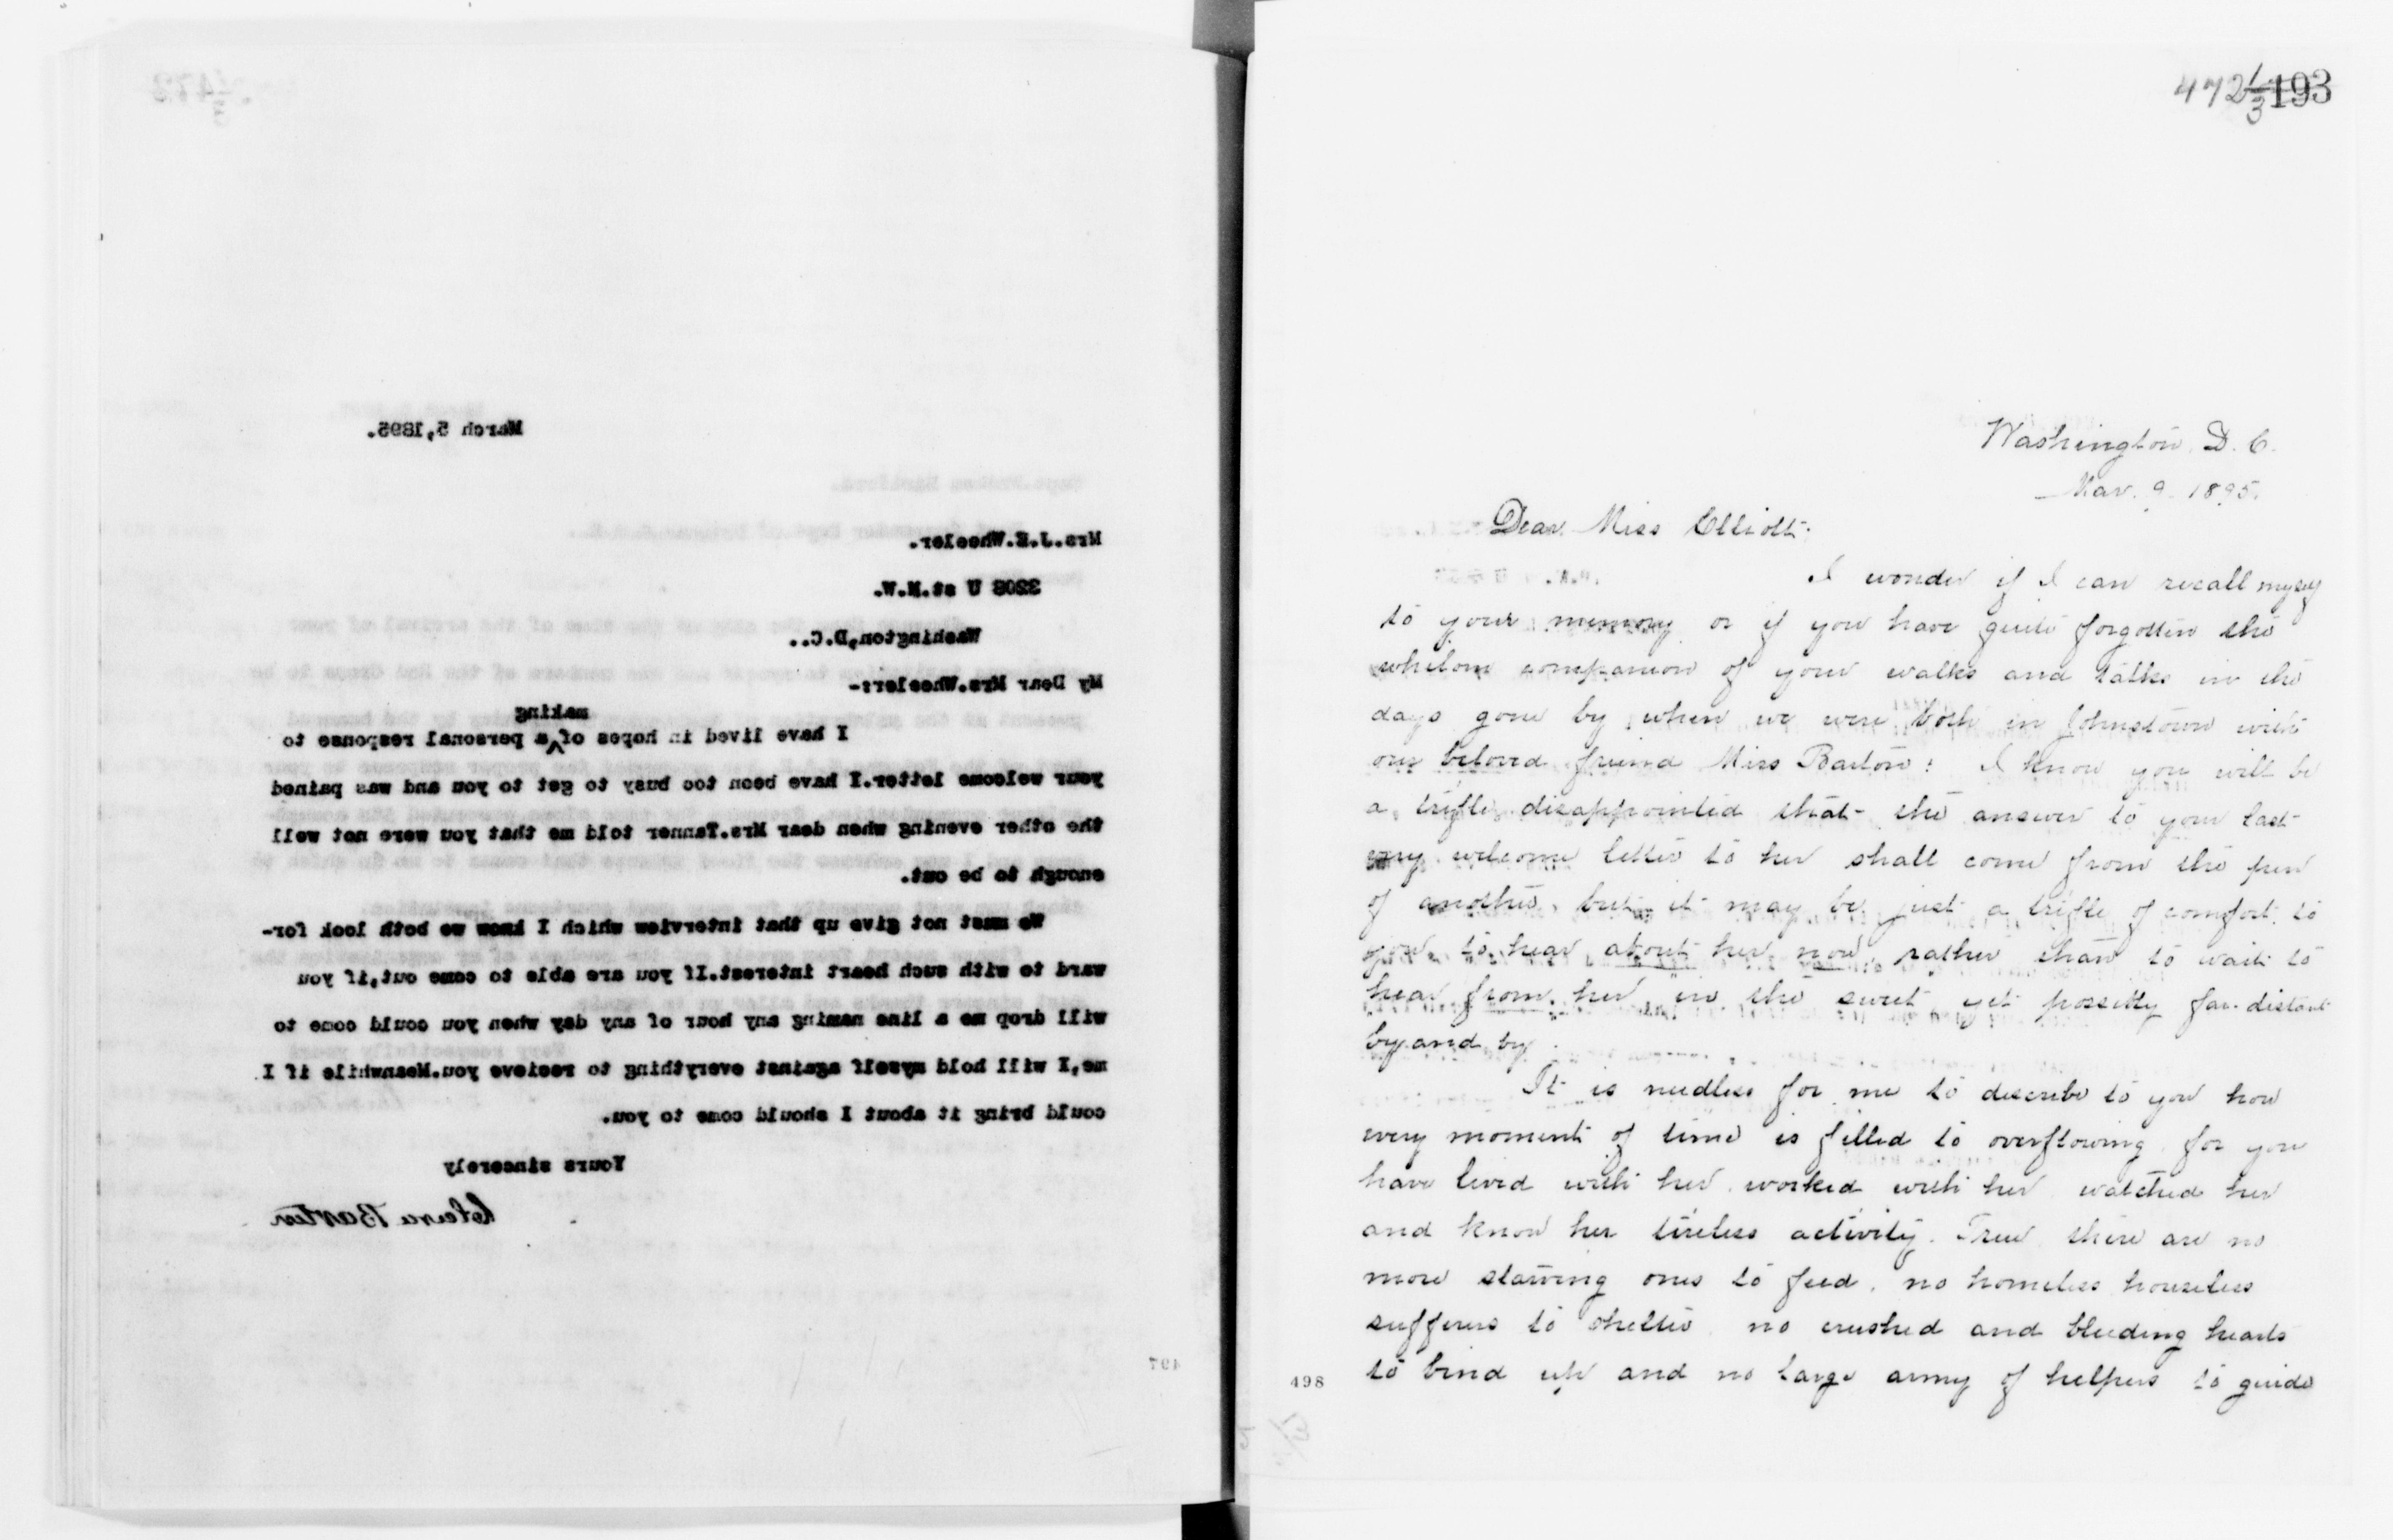 March 5,1895.
Mrs.J.E.Wheeler.
3208 U st.N.W.
Washington,D.C..
My Dear Mrs.Wheeler:-
making
I have lived in hopes of ^ a personal response to
your welcome letter.I have been too busy to get to you and was pained
the other evening when dear Mrs.Tanner told me that you were not well
enough to be out.
We must not give up that interview which I know we both look for-
ward to with such heart interest.If you are able to come out,if you
will drop me a line naming any hour of any day when you could come to
me,I will hold myself against everything to recieve you.Meanwhile if I
could bring it about I should come to you.
Yours sincerely
Clara Barton
497
472 1/3 193
Washington, D. C.
Mar. 9. 1895.
Dear Miss Elliott.
I wonder if I can recall myself
to your memory or if you have quite forgotten the
whilom companion of your walks and talks in the
days gone by when we were both in Johnstown with
our beloved friend Miss Barton! I know you will be
a trifle disappointed that the answer to your last
very welcome letter to her shall come from the pen
of another, but it may be just a trifle of comfort to
you to hear about her now, rather than to wait to
hear from her in the sweet yet possibly far-distant
by and by.
It is needless for me to describe to you how
every moment of time is filled to overflowing for you
have lived with her. worked with her watched her
and know her tireless activity. True there are no
more starving ones to feed, no homeless houseless
sufferers to shelter no crushed and bleeding hearts
to bind up and no large army of helpers to guide
498